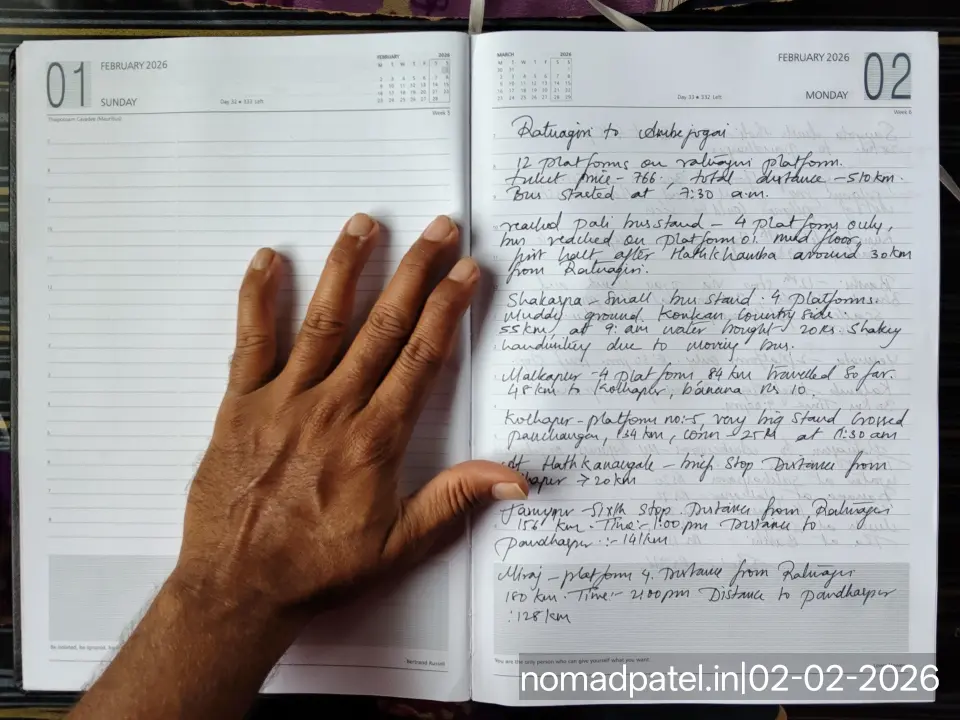 01
FEBRUARY 2026
SUNDAY
Day 32 • 333 Left
FEBRUARY 2026
M T W T F S S
1
2 3 4 5 6 7 8
9 10 11 12 13 14 15
16 17 18 19 20 21 22
23 24 25 26 27 28
Week 5
Thaipoosam Cavadee (Mauritius)
Bertrand Russell
MARCH 2026
M T W T F S S
30 31 1
2 3 4 5 6 7 8
9 10 11 12 13 14 15
16 17 18 19 20 21 22
23 24 25 26 27 28 29
Day 33 • 332 Left
FEBRUARY 2026
MONDAY
02
Week 6
Ratnagiri to Ambejogai
12 platforms on ratnagiri platform.
ticket price - 766, total distance - 510 km.
Bus started at 7:30 a.m.
reached pali bus stand - 4 platforms only,
bus reached on platform 01 mud floor,
first halt after Hathkhamba around 30 km
from Ratnagiri.
Shakarpa - Small bus stand. 4 platforms.
Muddy ground. Konkan Country side.
55 km, at 9: am water bought - 20 Rs. Shakey
handwriting due to moving bus.
Malkapur - 4 platform, 84 km travelled so far.
48 km to Kolhapur, banana Rs 10.
Kolhapur - platform no:-5, very big Stand Crossed
panchganga, 134 km, corn - 25 Rs at 11:30 am
At Hathkanangale - brief Stop Distance from
→ 20 km
- Sixth Stop. Distance from Ratnagiri
156 km. Time:- 1:00 pm Distance to
pandharpur :- 141 km
Miraj - platform 4. Distance from Ratnagiri
180 km. Time:- 2:00 pm Distance to pandharpur
:128 km
You are the only person who can give yourself what you want.
nomadpatel.in|02-02-2026